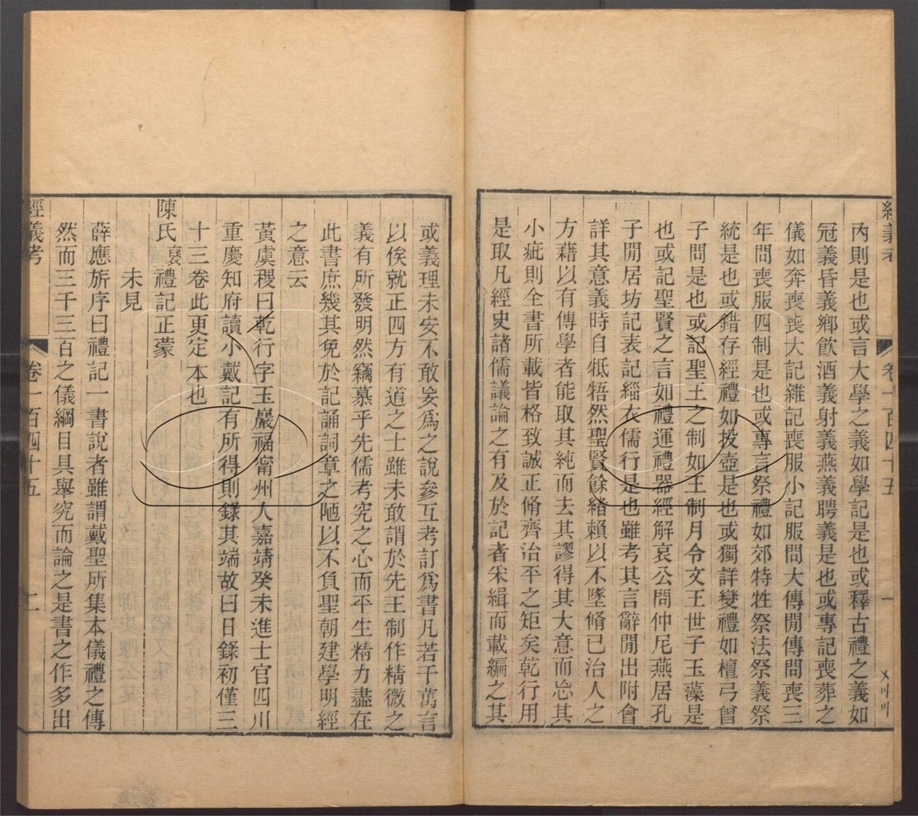 內則是也或言大學之義如學記是也或釋古禮之義如
冠義昏義鄉飲酒義射義燕義聘義是也或專記喪葬之
儀如奔喪喪大記雜記喪服小記服問大傳閒傳問喪三
年問喪服四制是也或專言祭禮如郊特牲祭法祭義祭
統是也或錯存經禮如投壺是也或獨詳變禮如檀弓曾
子問是也或記聖王之制如王制月令文王世子玉藻是
也或記聖賢之言如禮運禮器經解哀公問仲尼燕居孔
子閒居坊記表記緇衣儒行是也雖考其言辭閒出附會
詳其意義時自牴牾然聖賢餘緒賴以不墜脩已治人之
方藉以有傳學者能取其純而去其謬得其大意而忘其
小疵則全書所載皆格致誠正脩齊治平之矩矣乾行用
是取凡經史諸儒議論之有及於記者采緝而載編之其
經義考
卷一百四十五
一
或義理未安不敢妄爲之說參互考訂爲書凡若干萬言
以俟就正四方有道之士雖未敢謂於先王制作精微之
義有所發明然竊慕乎先儒考究之心而平生精力盡在
此書庶幾其免於記誦詞章之陋以不負聖朝建學明經
之意云
黃虞稷曰乾行字玉巖福甯州人嘉靖癸未進士官四川
重慶知府讀小戴記有所得則錄其端故曰日錄初僅三
十三卷此更定本也
陳氏襃禮記正蒙
未見
薛應旂序曰禮記一書說者雖謂戴聖所集本儀禮之傳
然而三千三百之儀綱目具舉究而論之是書之作多出
經義考
卷一百四十五
二